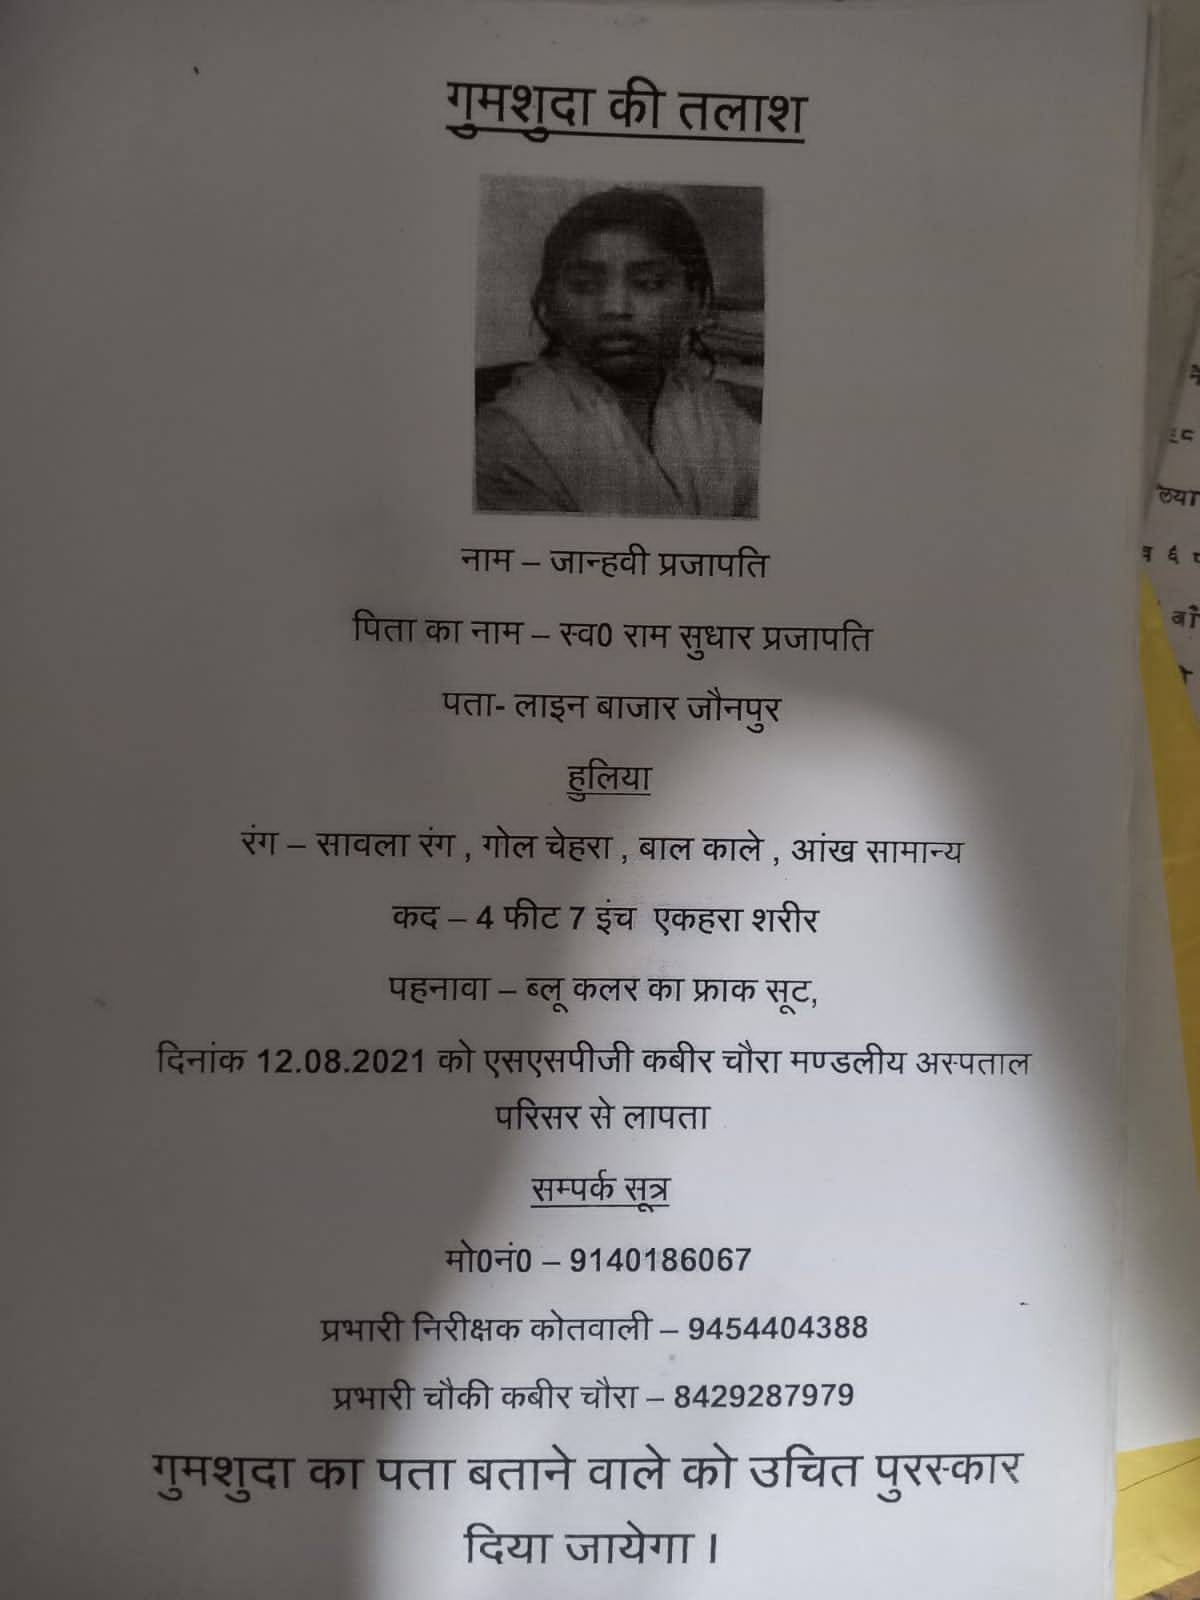 गुमशुदा की तलाश
नाम – जान्हवी प्रजापति
पिता का नाम – स्व0 राम सुधार प्रजापति
पता- लाइन बाजार जौनपुर
हुलिया
रंग – सावला रंग , गोल चेहरा , बाल काले , आंख सामान्य
कद – 4 फीट 7 इंच एकहरा शरीर
पहनावा – ब्लू कलर का फ्राक सूट,
दिनांक 12.08.2021 को एसएसपीजी कबीर चौरा मण्डलीय अस्पताल
परिसर से लापता
सम्पर्क सूत्र
मो0नं0 – 9140186067
प्रभारी निरीक्षक कोतवाली – 9454404388
प्रभारी चौकी कबीर चौरा – 8429287979
गुमशुदा का पता बताने वाले को उचित पुरस्कार
दिया जायेगा ।